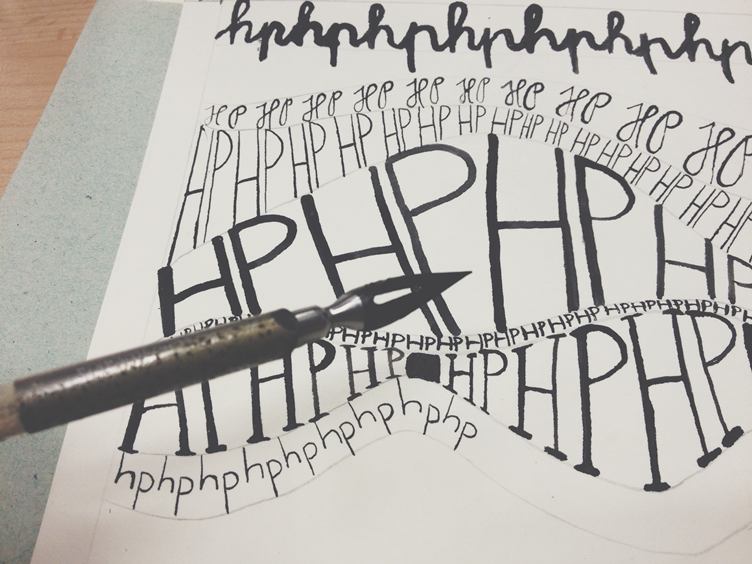 hphphphphphphp
HP HP HP HP HP HP HP HP HP HP
HP HP HP HP HP HP HP HP HP HP HP HP HP HP HP HP
HP HP HP HP
HPHPHP HPHPHPHPHPHPHPHPHPHPHPHPHP
HP HP HP HP HP HP
hphphphphphphphphp